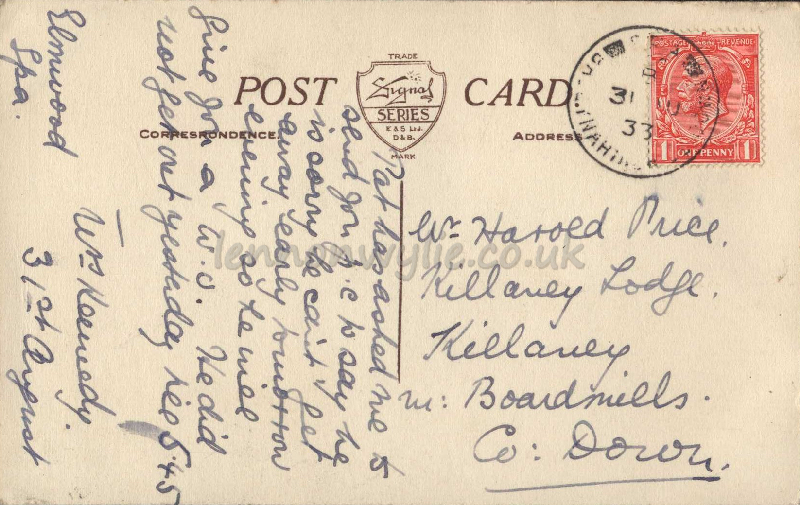 TRADE
Signal
SERIES
E & S Ltd.
D & B.
MARK
POST CARD
CORRESPONDENCE.
ADDRESS
POSTAGE REVENUE
1 ONE PENNY 1
31
33
lennonwylie.co.uk
Mr Harold Price.
Killaney Lodge.
Killaney
Boardmills.
Co: Down.
Pat has asked me to
send you P.C to say he
is sorry he can't get
away early tomorrow
evening so he will
give you a W.S. He did
not get out yesterday till 5.45
Elmwood
Spa.
Kennedy
31st August